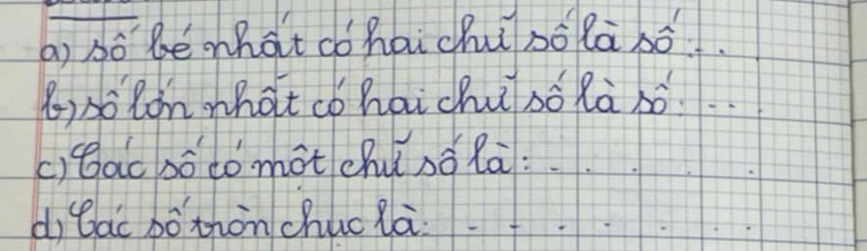 a) số bé nhất có hai chữ số là số: ..
b) số lớn nhất có hai chữ số là số: ...
c) Các số có một chữ số là: . . . . .
d) Các số tròn chục là: . . . . . . .